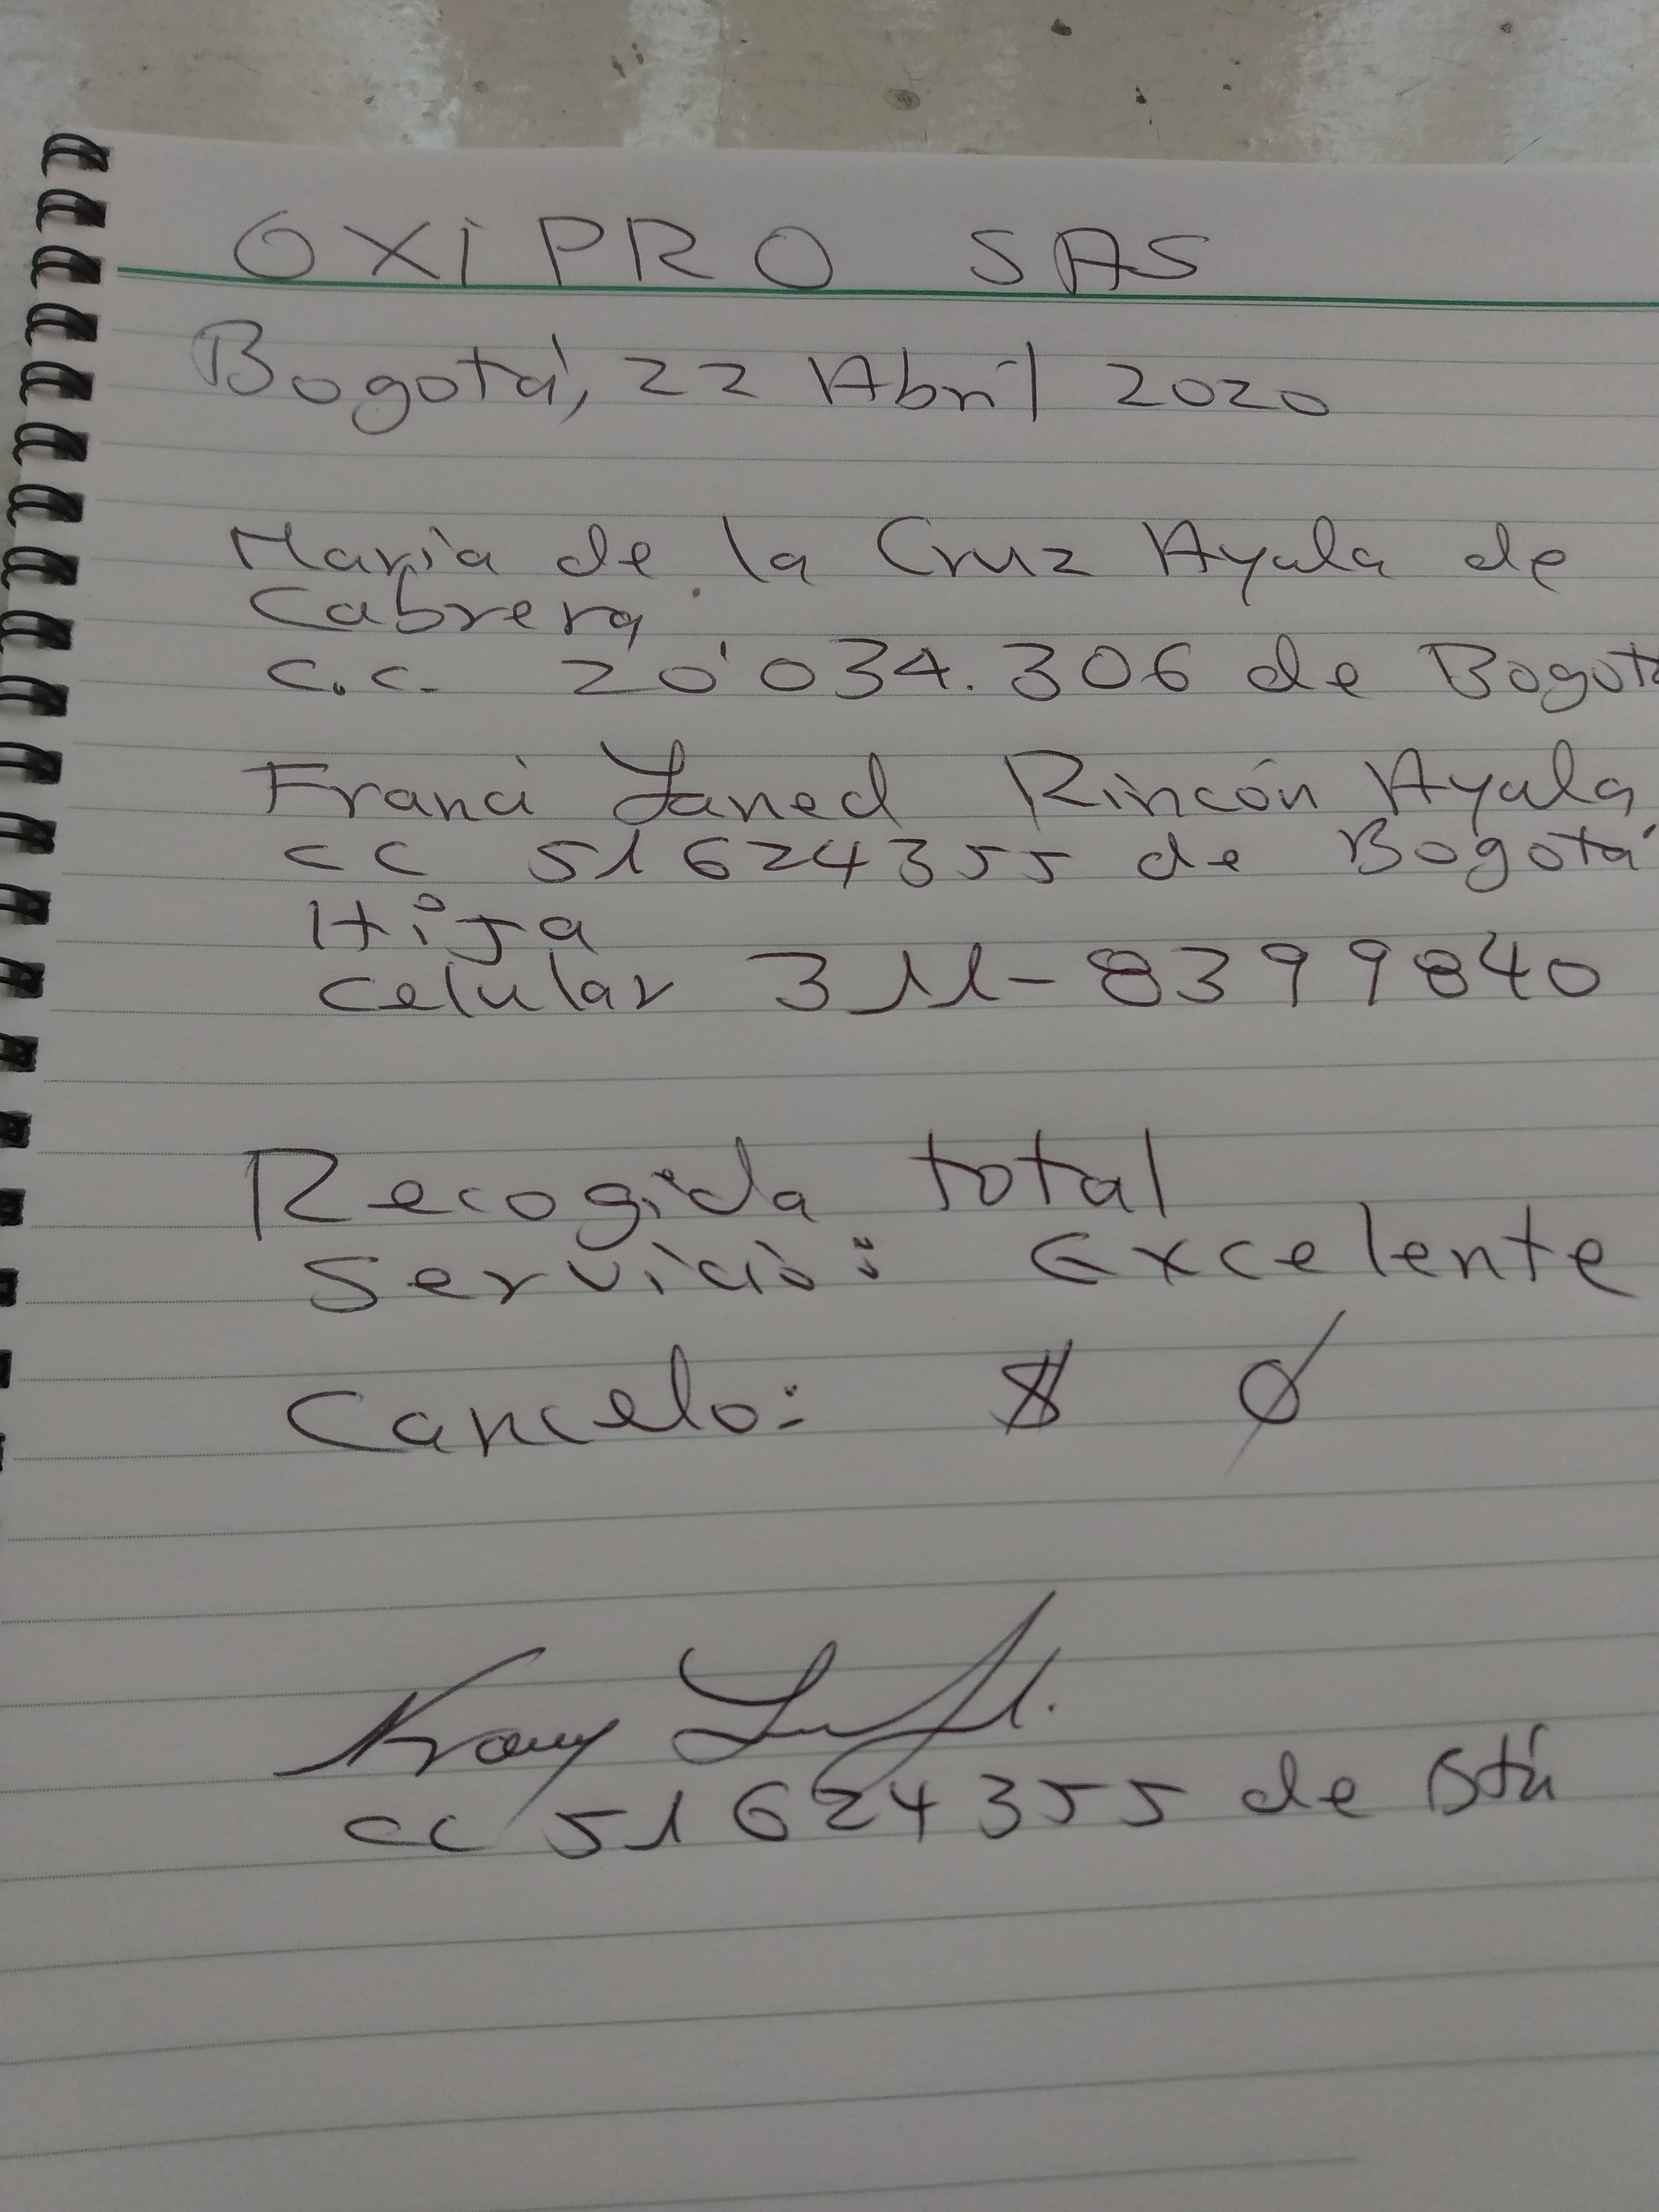 OXIPRO SAS
Bogotá, 22 Abril 2020
Maria de la Cruz Ayala de
Cabrera
C.C. 20'034.306 de Bogotá
Franci Janed Rincón Ayala
CC 51624355 de Bogotá
Hija
Celular 311-8399840
Recogida total
Servicio: Excelente
Cancelo: $ 0
CC 51624355 de Btá